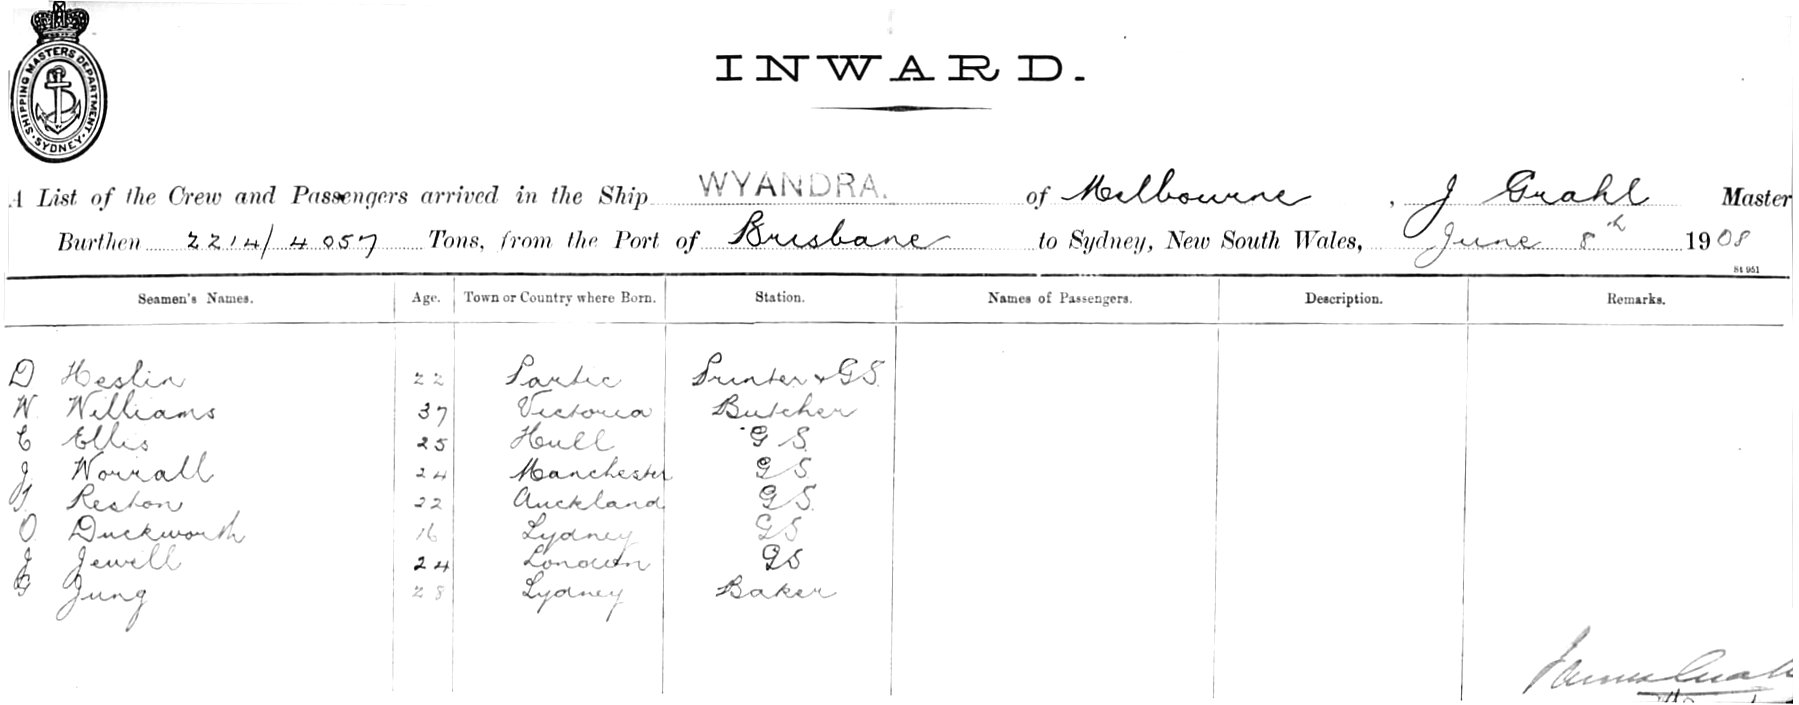 SHIPPING MASTERS DEPARTMENT. SYDNEY
INWARD.
A List of the Crew and Passengers arrived in the Ship WYANDRA. of Melbourne, J Grahl Master
Burthen 2214/4057 Tons, from the Port of Brisbane to Sydney, New South Wales, June 8th 1908
St 951
Seamen's Names. Age. Town or Country where Born. Station. Names of Passengers. Description. Remarks.
D Heslin 22 Partic Printer & GS.
W. Williams 37 Victoria Butcher
E Ellis 25 Hull G S.
J Worrall 24 Manchester GS
Reston 22 Auckland GS.
O Duckworth 16 Sydney GS
J Jewell 24 London GS
G Jung 28 Sydney Baker
James Grahl